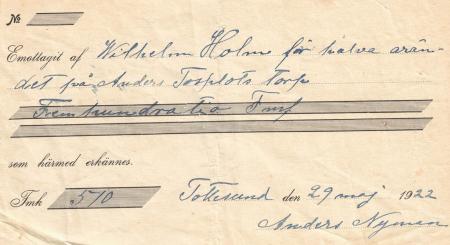 №
Emottagit af Wilhelm Holm för halva arän-
det på Anders Torplots torp
Femhundra tio Fmk
som härmed erkännes.
Fmk 510 Tottesund den 29 maj 1922
Anders Nyman